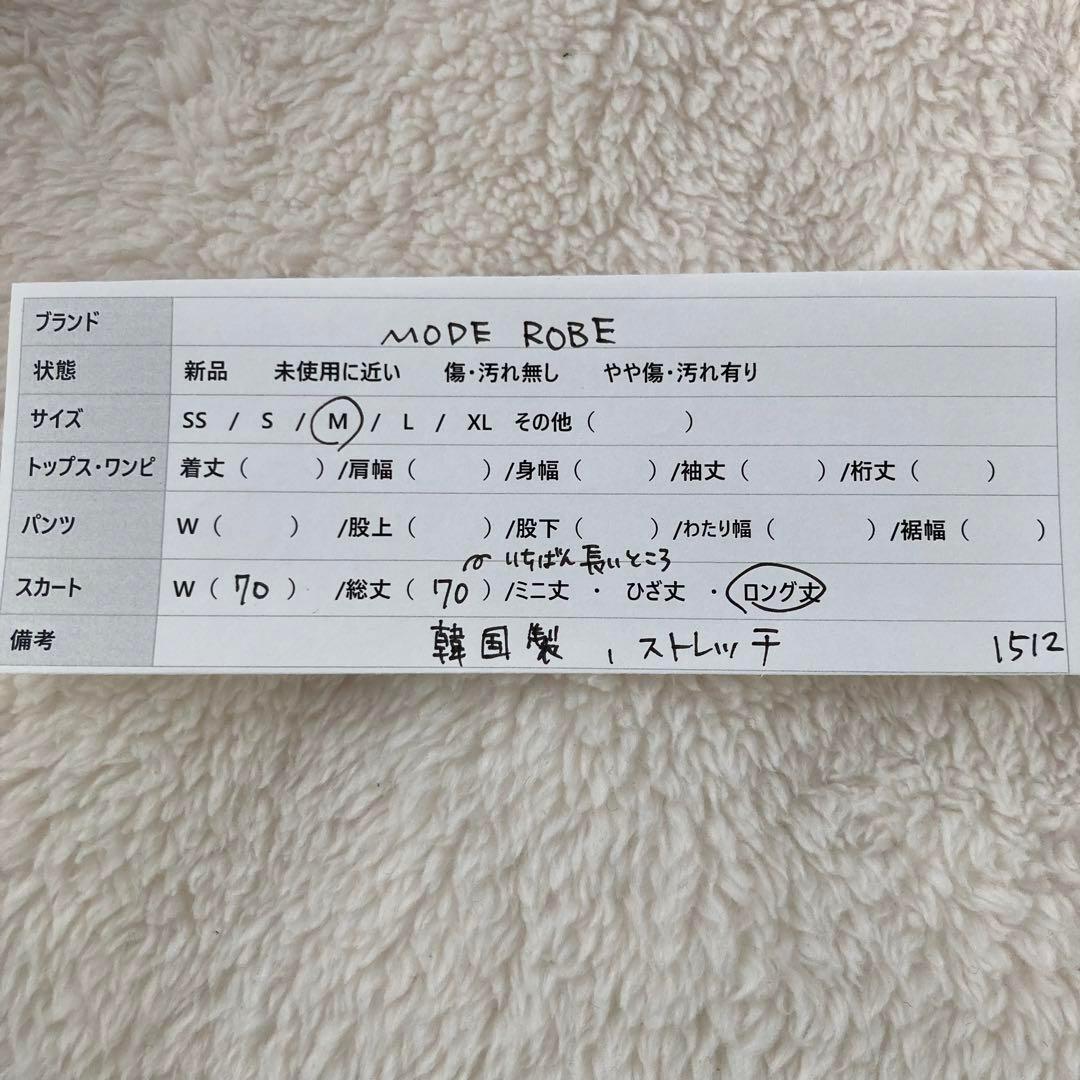 ブランド MODE ROBE
状態 新品 未使用に近い 傷・汚れ無し やや傷・汚れ有り
サイズ SS / S / M / L / XL その他 ( )
トップス・ワンピ 着丈 ( ) /肩幅 ( ) /身幅 ( ) /袖丈 ( ) /桁丈 ( )
パンツ W ( ) /股上 ( ) /股下 ( ) /わたり幅 ( ) /裾幅 ( )
いちばん長いところ
スカート W ( 70 ) /総丈 ( 70 ) /ミニ丈 ・ ひざ丈 ・ ロング丈
備考 韓国製、ストレッチ 1512